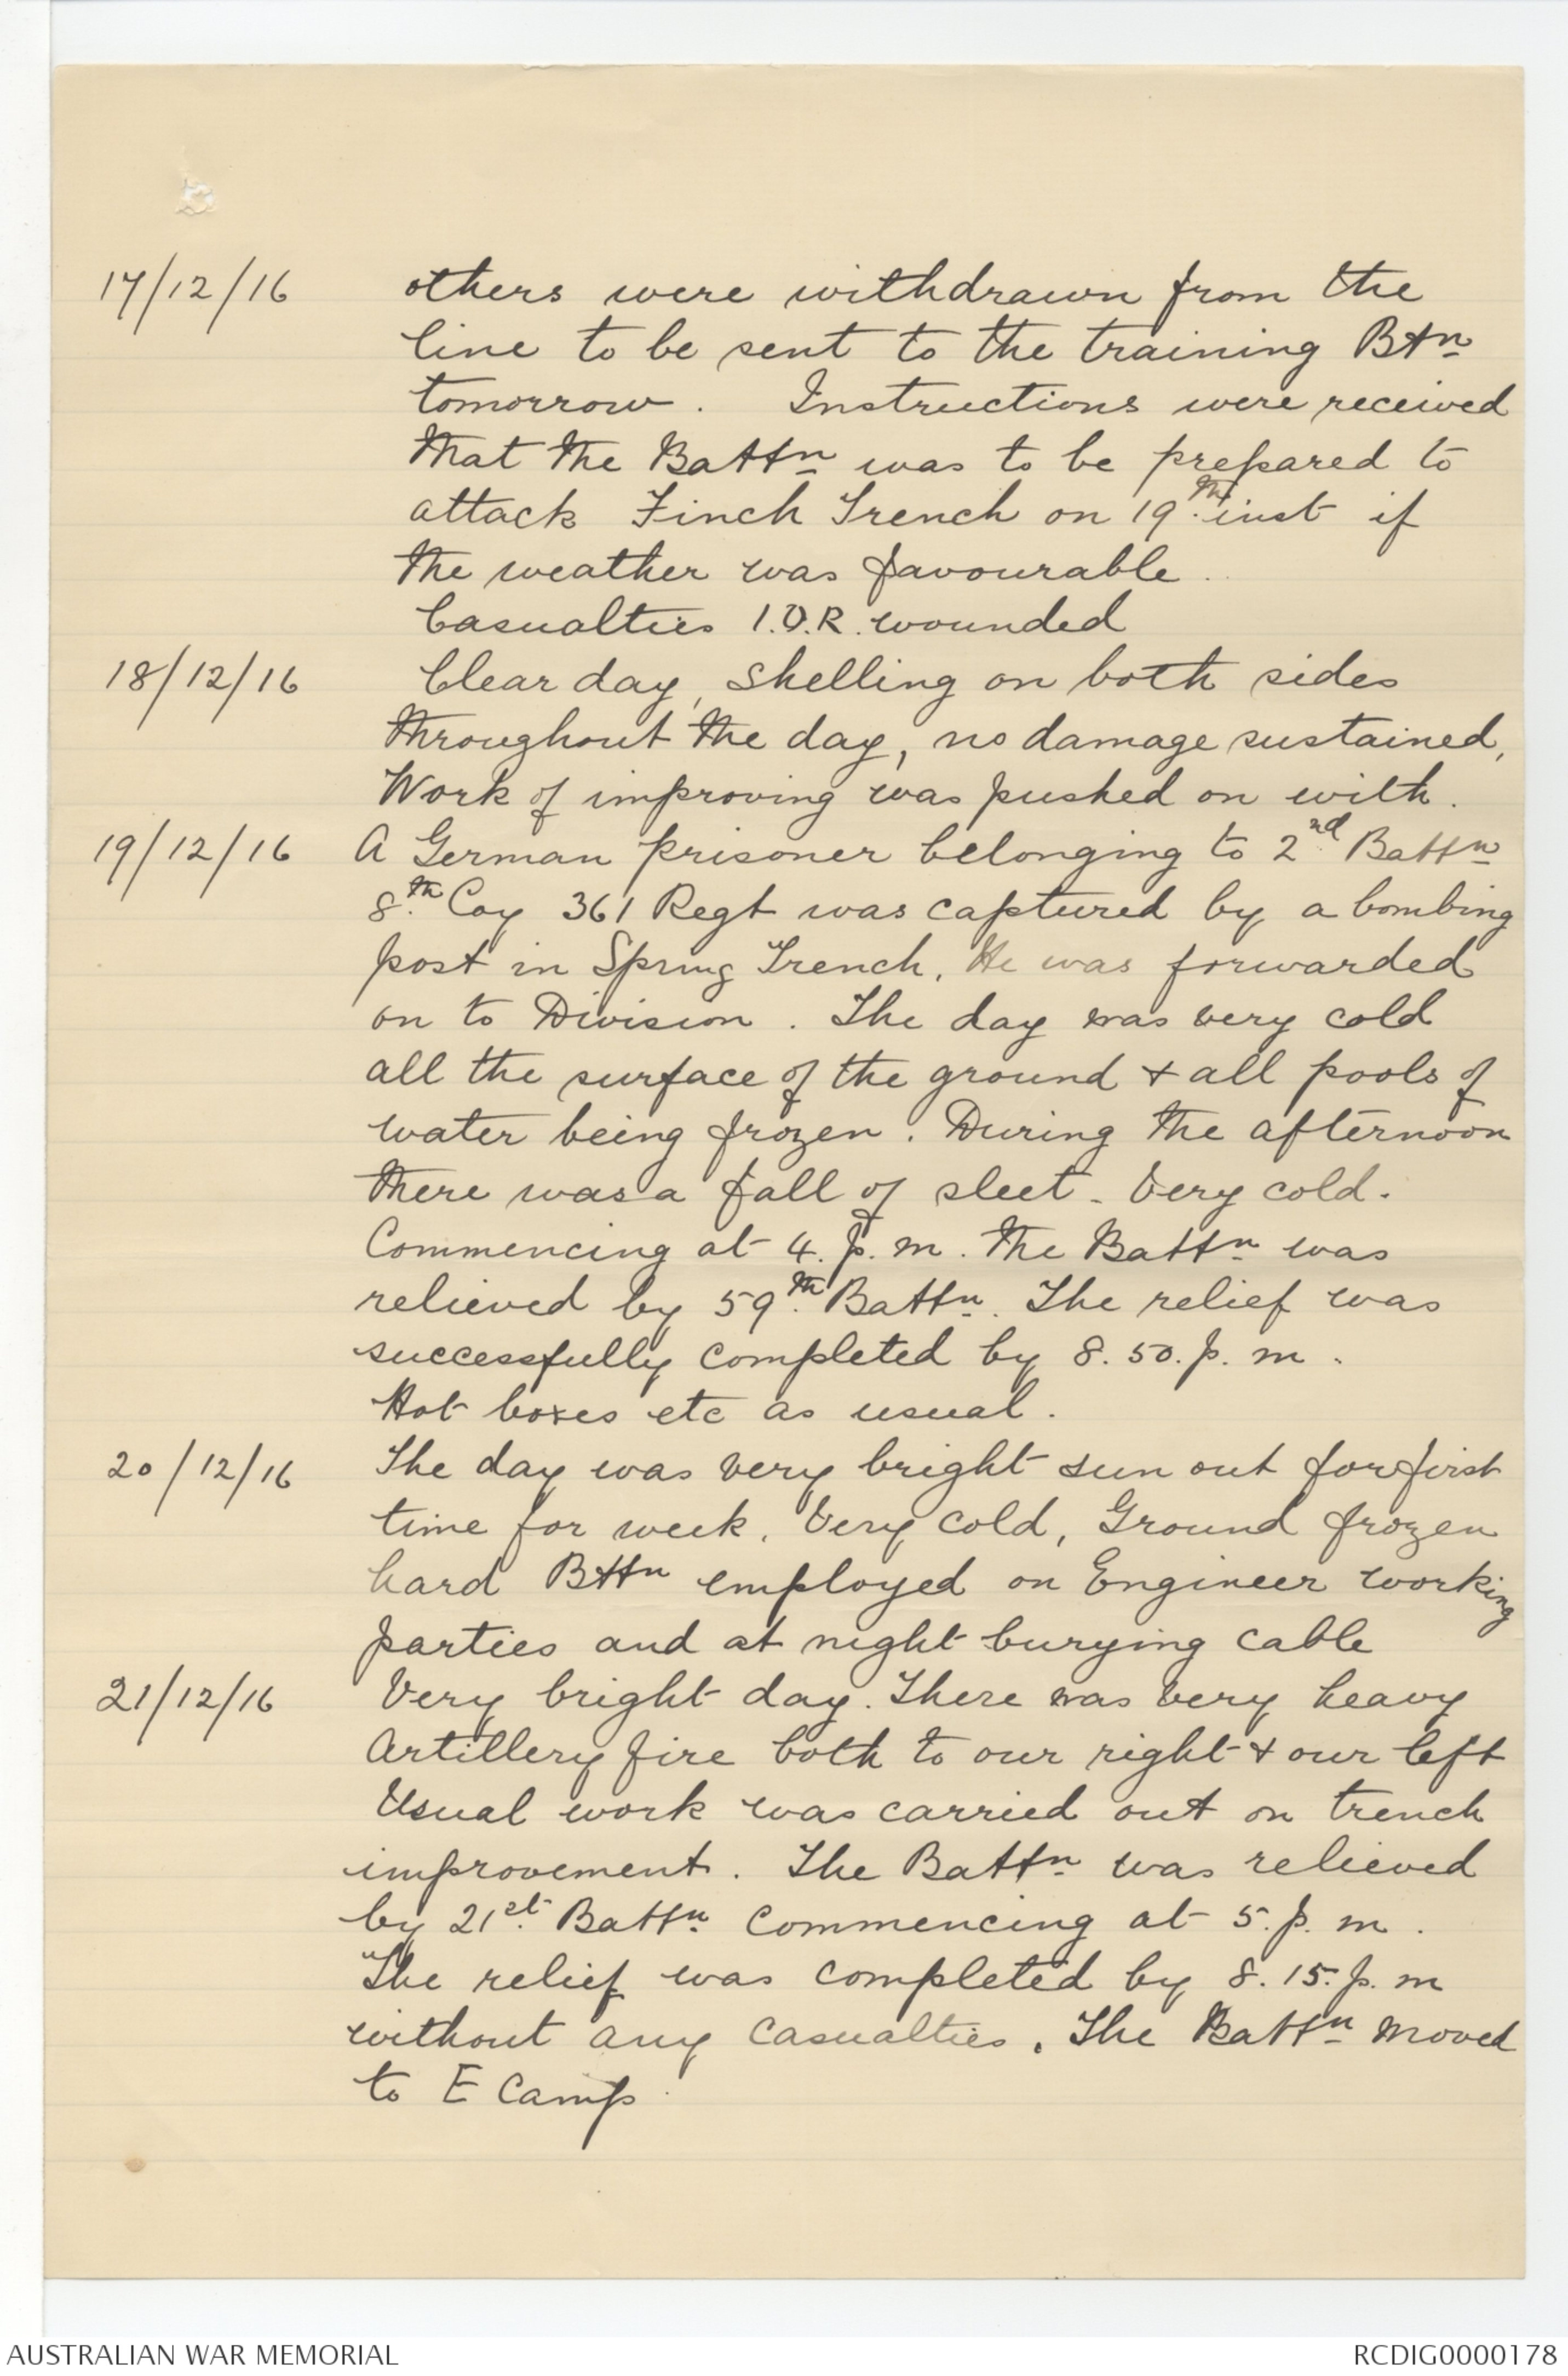 17/12/16 others were withdrawn from the
line to be sent to the training Btn
tomorrow. Instructions were received
that the Battn was to be prepared to
attack Finch Trench on 19th inst if
the weather was favourable.
Casualties 1.O.R. wounded
18/12/16 Clear day, shelling on both sides
throughout the day, no damage sustained,
Work of improving was pushed on with.
19/12/16 A German prisoner belonging to 2nd Battn
8th Coy 361 Regt was captured by a bombing
post in Spring Trench. He was forwarded
on to Division. The day was very cold
all the surface of the ground & all pools of
water being frozen. During the afternoon
there was a fall of sleet. Very cold.
Commencing at 4. p.m. the Battn was
relieved by 59th Battn. The relief was
successfully completed by 8.50. p.m.
Hot boxes etc as usual.
20/12/16 The day was very bright sun out for first
time for week. Very cold, Ground frozen
hard Bttn employed on Engineer working
parties and at night burying cable
21/12/16 Very bright day. There was very heavy
Artillery fire both to our right & our left
Usual work was carried out on trench
improvement. The Battn was relieved
by 21st Battn commencing at 5. p.m.
The relief was completed by 8.15. p.m
without any casualties. The Battn moved
to E Camp.
AUSTRALIAN WAR MEMORIAL RCDIG0000178